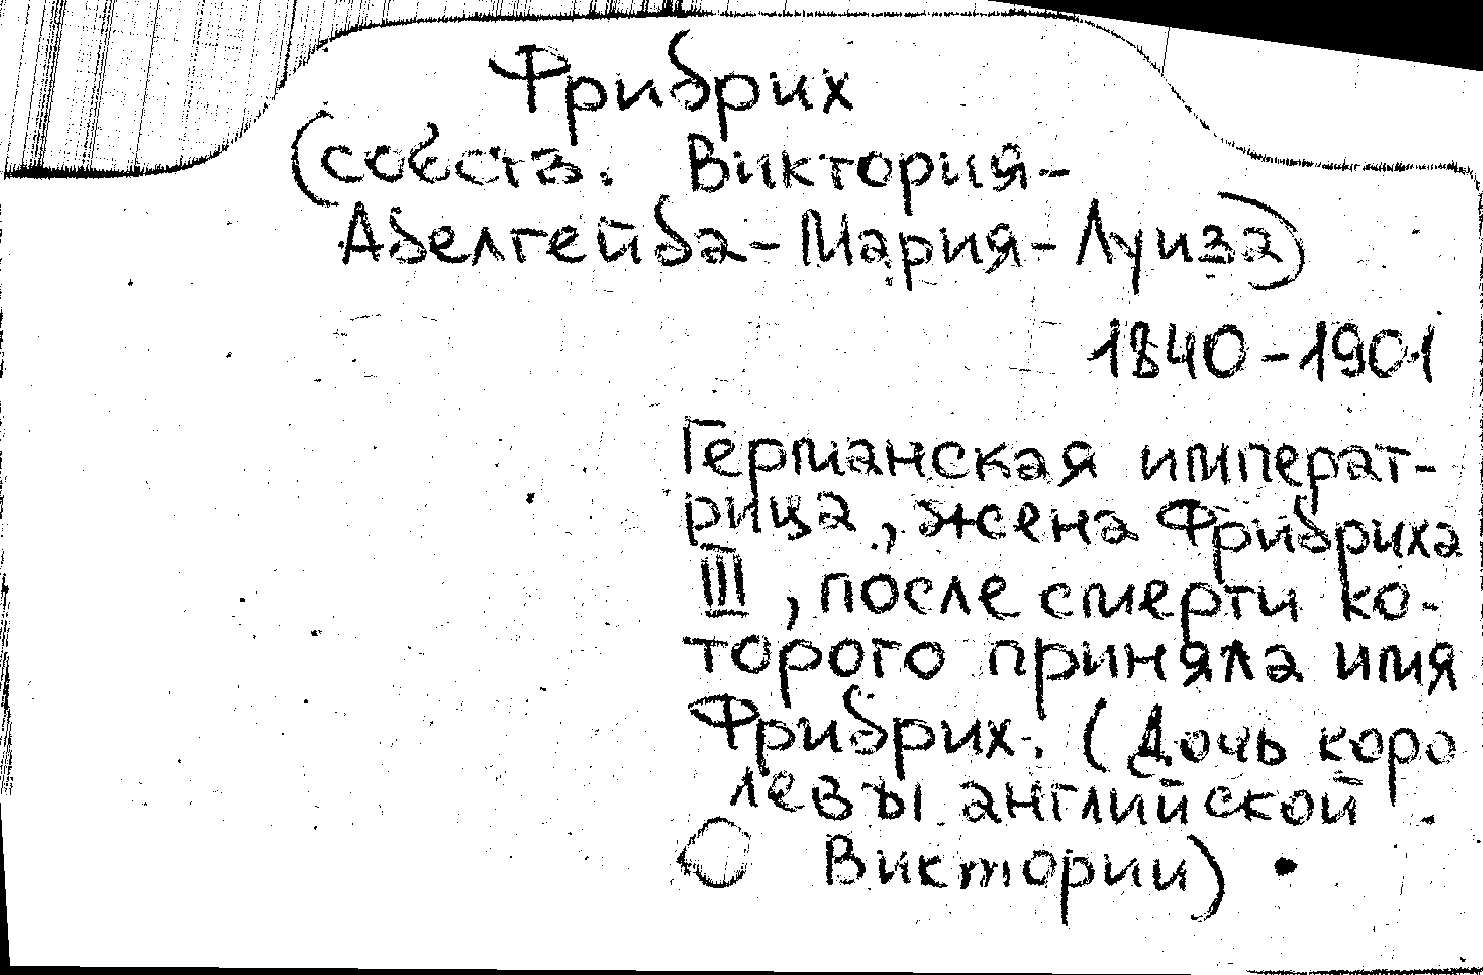 Фридрих
(собств. Виктория-
Аделгейда-Мария-Луиза)
1840-1901
Германская императ-
рица, жена Фридриха
III, после смерти ко-
торого приняла имя
Фридрих. (Дочь коро
левы английской
Виктории)